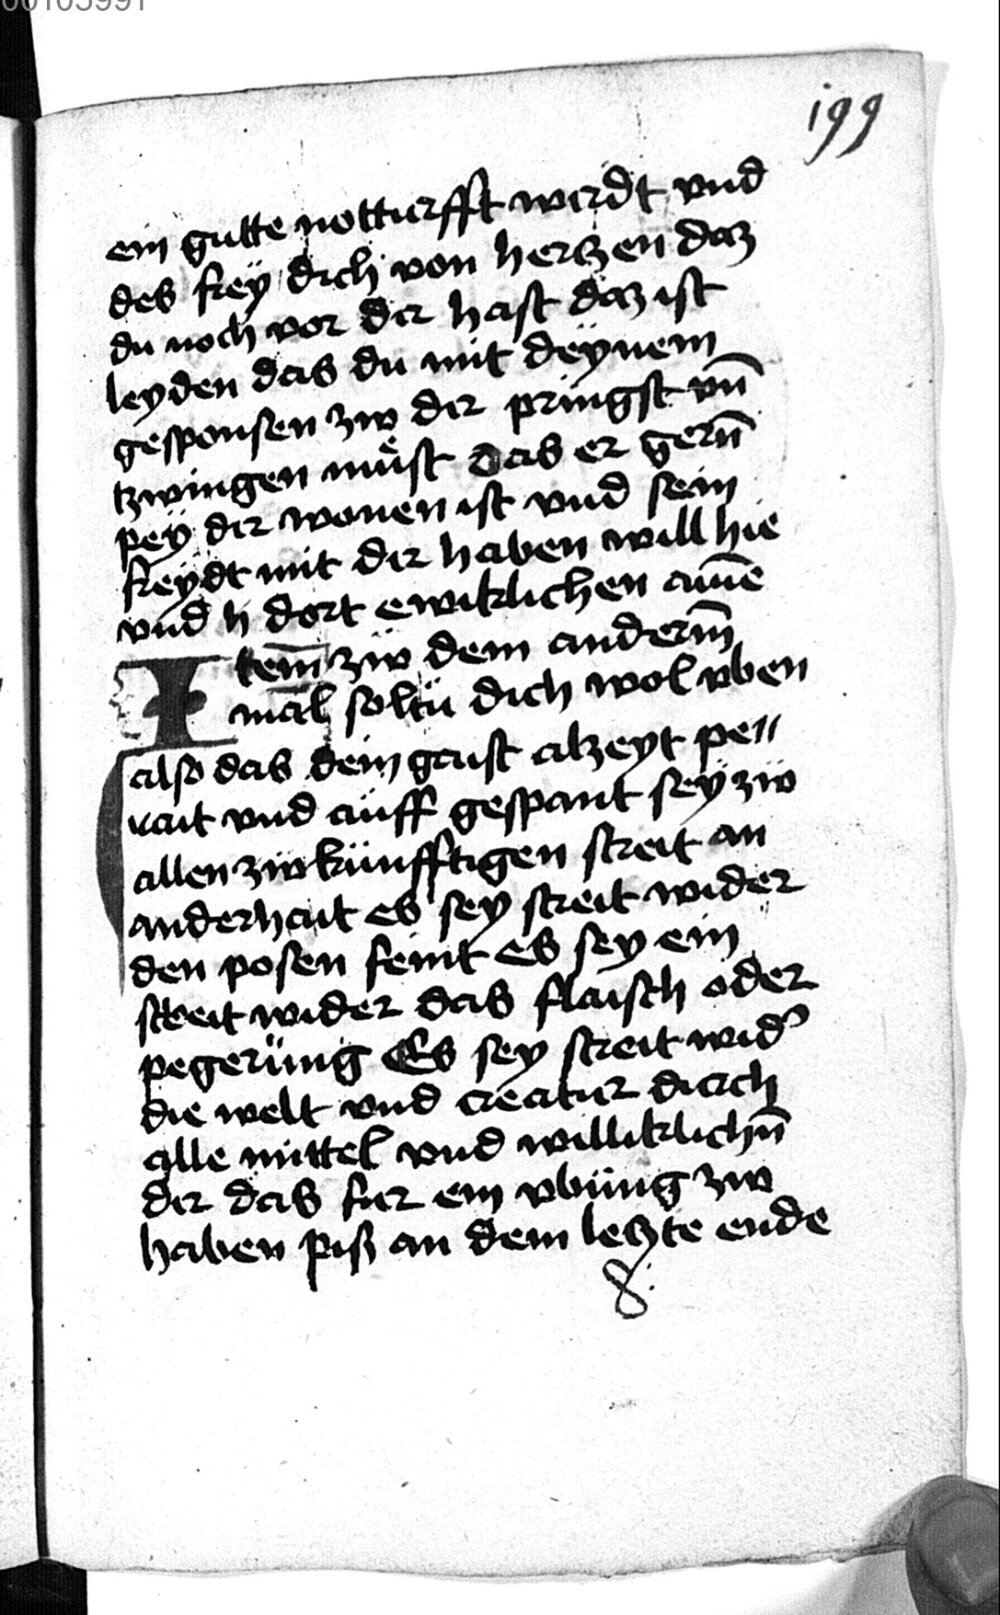 00103991
199
ein gutte notturfft wirdt vnd
des frey dich von hertzen daz
du noch vor dir hast daz ist
leyden das du mit deÿnem
gesponsen zw dir pringst vn̄
tzwingen muͤst das er gern̄
peÿ dir wonen ist vnd sein
freydt mit dir haben will hie
vnd h dort ewiklichen ame̅
Item̅ zw dem anderm̅
mal soltu dich wol vben
also das dein gaist alzeyt pe⸗
rait vnd auff gespant seÿ zw
allen zwkunfftigen streit an
anderhait es sey streit wider
den posen feint es sey ein
streit wider das flaisch oder
pegerung Es sey streit wid᾽
die welt vnd creatur durch
alle mittel vnd williklichn̅
dir das fur ein vbung zw
haben piß an dem letzte ende